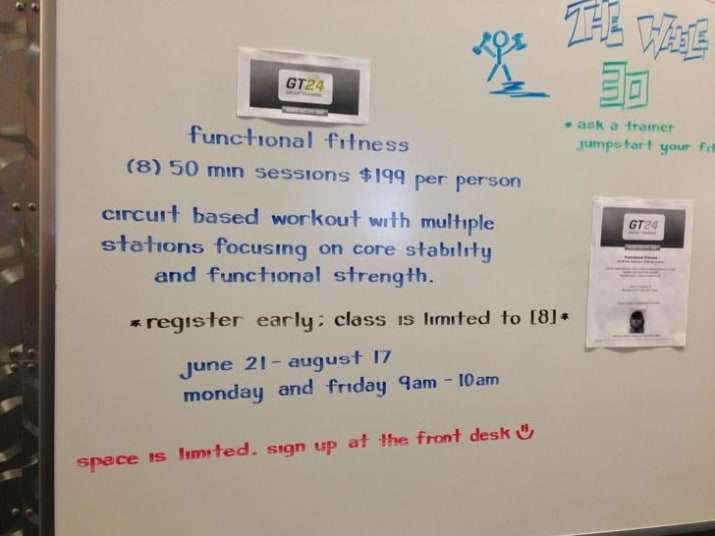 GT24
functional fitness
(8) 50 min sessions $199 per person
circuit based workout with multiple
stations focusing on core stability
and functional strength.
*register early; class is limited to [8]*
june 21 - august 17
monday and friday 9am - 10am
space is limited. sign up at the front desk
THE WHOLE
30
* ask a trainer
jumpstart your
GT24
Functional Fitness